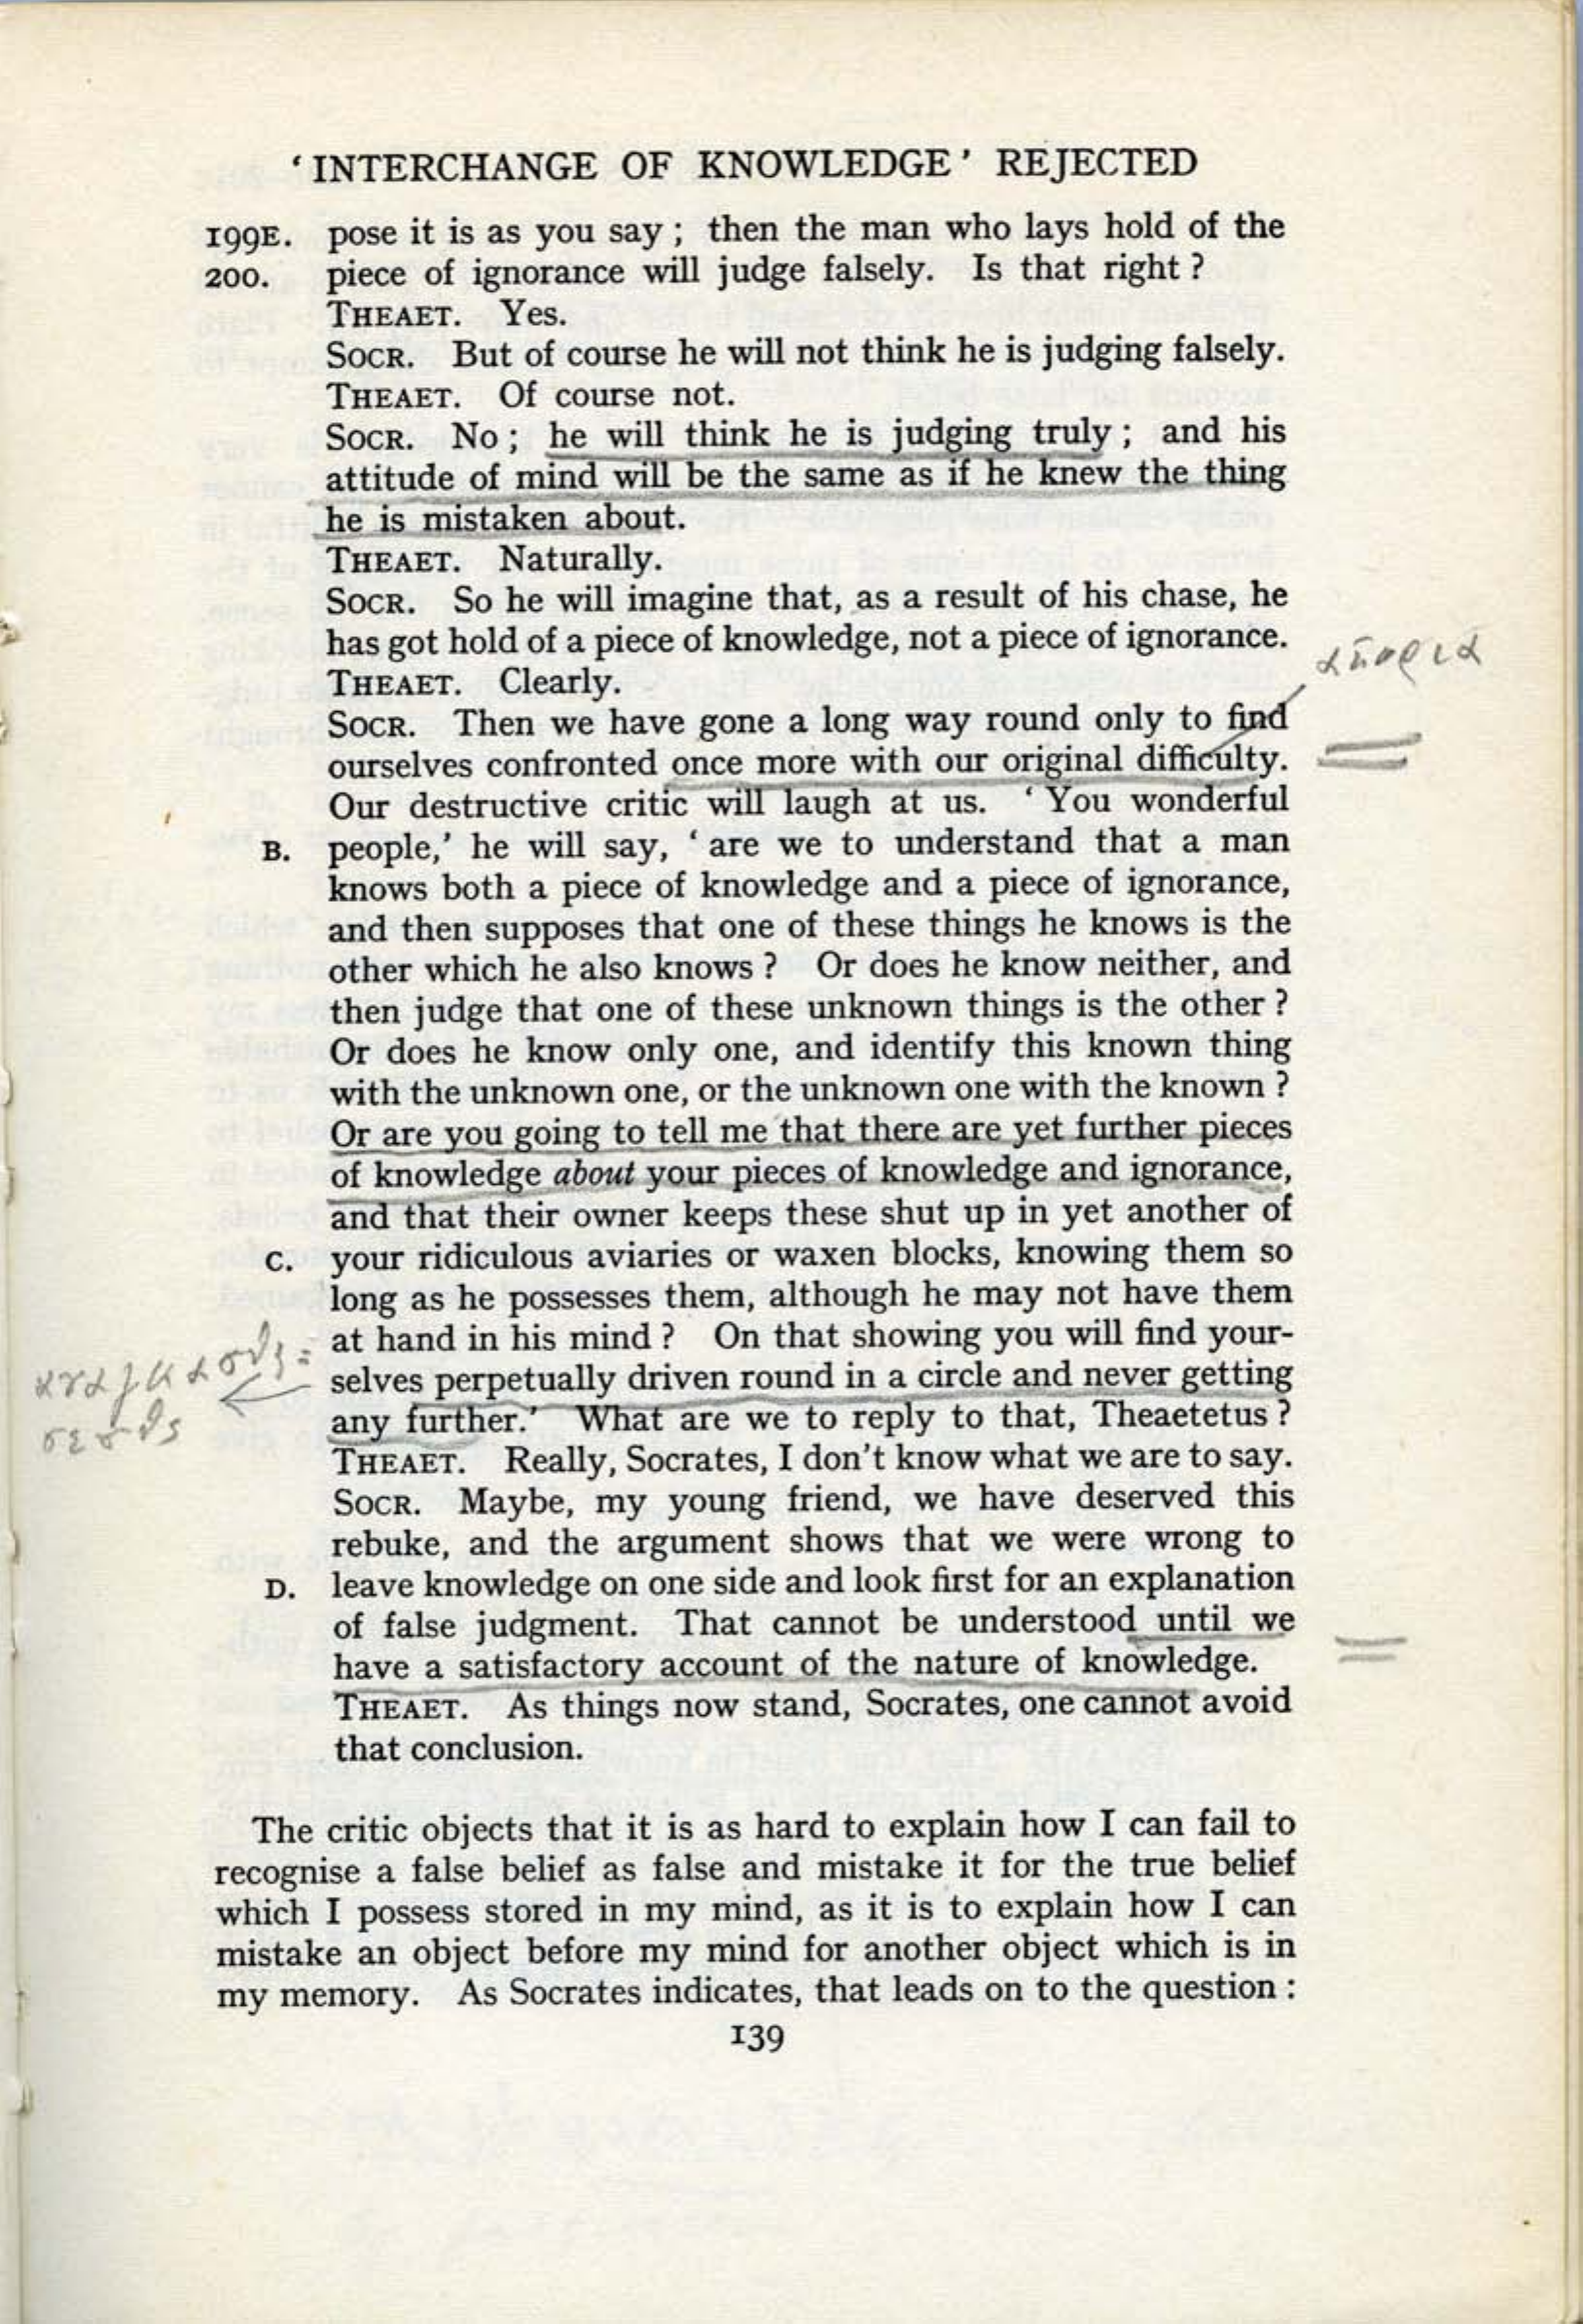 ‘ INTERCHANGE OF KNOWLEDGE ’ REJECTED
199E. pose it is as you say ; then the man who lays hold of the
200. piece of ignorance will judge falsely. Is that right ?
THEAET. Yes.
SOCR. But of course he will not think he is judging falsely.
THEAET. Of course not.
SOCR. No ; he will think he is judging truly ; and his
attitude of mind will be the same as if he knew the thing
he is mistaken about.
THEAET. Naturally.
SOCR. So he will imagine that, as a result of his chase, he
has got hold of a piece of knowledge, not a piece of ignorance.
απορια
THEAET. Clearly.
SOCR. Then we have gone a long way round only to find
ourselves confronted once more with our original difficulty.
Our destructive critic will laugh at us. ‘ You wonderful
B. people,’ he will say, ‘ are we to understand that a man
knows both a piece of knowledge and a piece of ignorance,
and then supposes that one of these things he knows is the
other which he also knows ? Or does he know neither, and
then judge that one of these unknown things is the other ?
Or does he know only one, and identify this known thing
with the unknown one, or the unknown one with the known ?
Or are you going to tell me that there are yet further pieces
of knowledge about your pieces of knowledge and ignorance,
and that their owner keeps these shut up in yet another of
C. your ridiculous aviaries or waxen blocks, knowing them so
long as he possesses them, although he may not have them
at hand in his mind ? On that showing you will find your-
selves perpetually driven round in a circle and never getting
any further.’ What are we to reply to that, Theaetetus ?
THEAET. Really, Socrates, I don’t know what we are to say.
SOCR. Maybe, my young friend, we have deserved this
rebuke, and the argument shows that we were wrong to
D. leave knowledge on one side and look first for an explanation
of false judgment. That cannot be understood until we
have a satisfactory account of the nature of knowledge.
THEAET. As things now stand, Socrates, one cannot avoid
that conclusion.
The critic objects that it is as hard to explain how I can fail to
recognise a false belief as false and mistake it for the true belief
which I possess stored in my mind, as it is to explain how I can
mistake an object before my mind for another object which is in
my memory. As Socrates indicates, that leads on to the question :
139